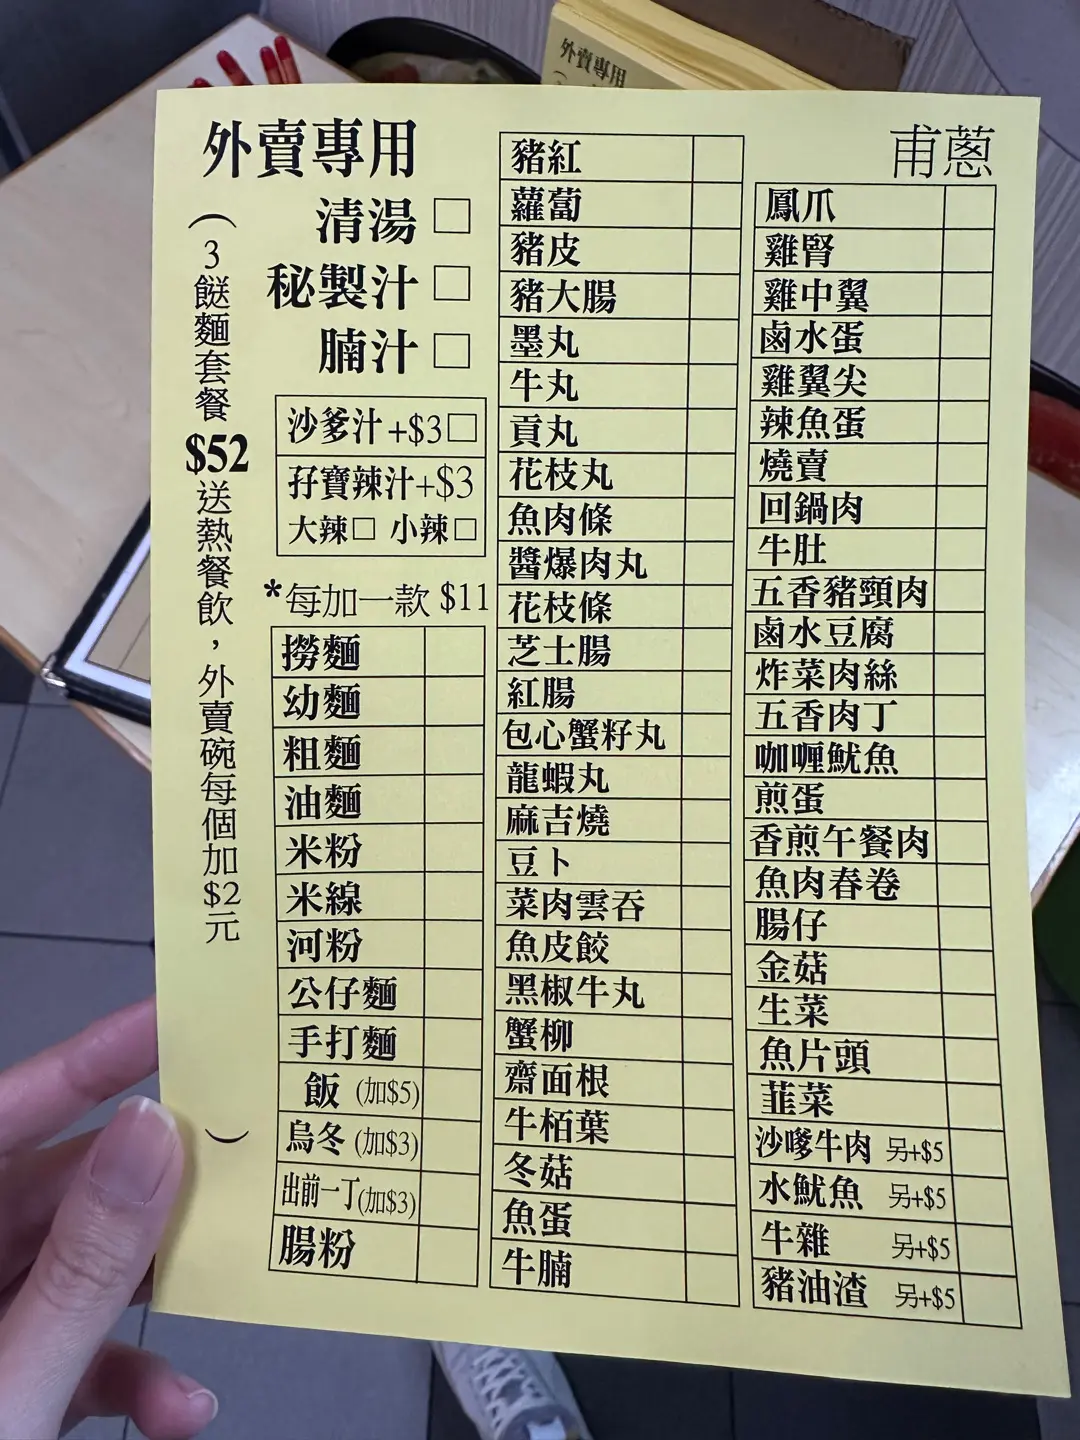 外賣專用
外賣專用
(3餸麵套餐$52送熱餐飲，外賣碗每個加$2元)
清湯 □
秘製汁 □
腩汁 □
沙爹汁+$3□
孖寶辣汁+$3
大辣□ 小辣□
*每加一款 $11
撈麵
幼麵
粗麵
油麵
米粉
米線
河粉
公仔麵
手打麵
飯 (加$5)
烏冬 (加$3)
出前一丁(加$3)
腸粉
豬紅
蘿蔔
豬皮
豬大腸
墨丸
牛丸
貢丸
花枝丸
魚肉條
醬爆肉丸
花枝條
芝士腸
紅腸
包心蟹籽丸
龍蝦丸
麻吉燒
豆卜
菜肉雲吞
魚皮餃
黑椒牛丸
蟹柳
齋面根
牛栢葉
冬菇
魚蛋
牛腩
甫蔥
鳳爪
雞腎
雞中翼
鹵水蛋
雞翼尖
辣魚蛋
燒賣
回鍋肉
牛肚
五香豬頸肉
鹵水豆腐
炸菜肉絲
五香肉丁
咖喱魷魚
煎蛋
香煎午餐肉
魚肉春卷
腸仔
金菇
生菜
魚片頭
韮菜
沙嗲牛肉 另+$5
水魷魚 另+$5
牛雜 另+$5
豬油渣 另+$5